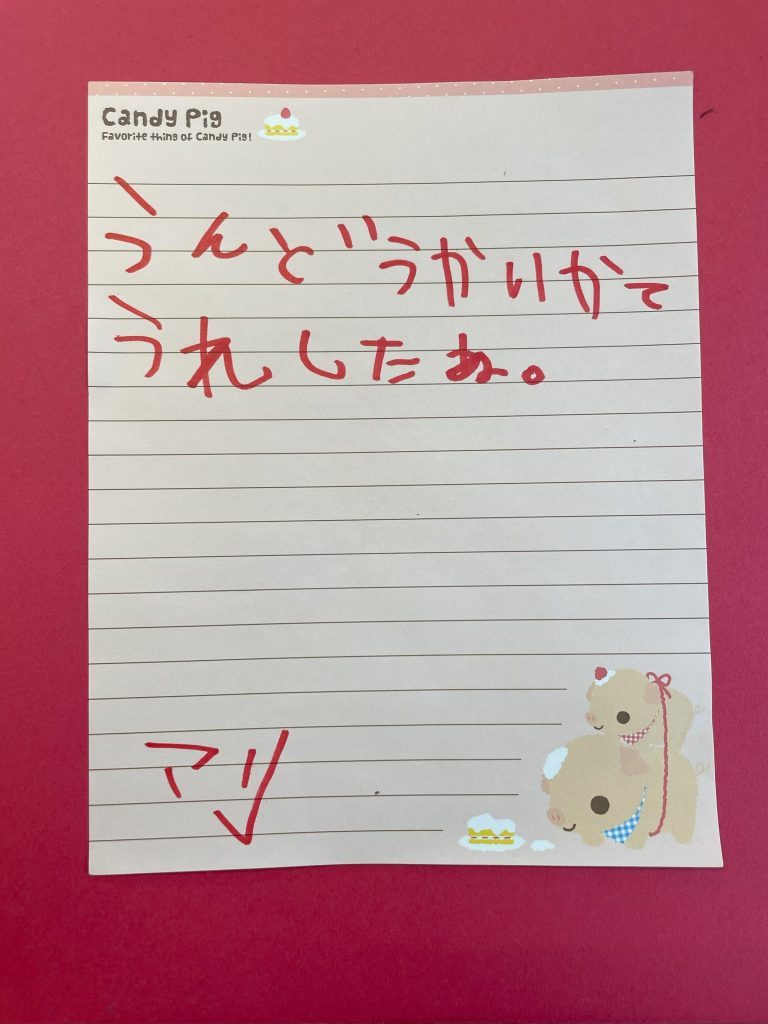 Candy Pig
Favorite thing of Candy Pig!
うんどうかいかて
うれしたね。
マリ